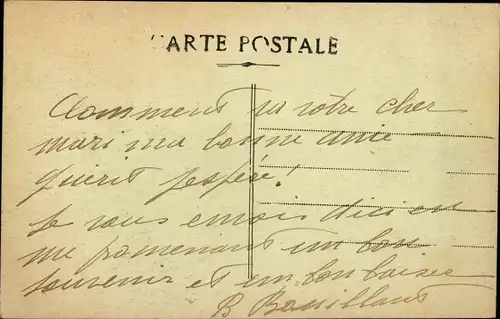 CARTE POSTALE
Comment va votre cher
mari ma bonne amie
guerit j'espère!
Je vous envois d'ici en
me promenant un bon
souvenir et un bon baiser
B